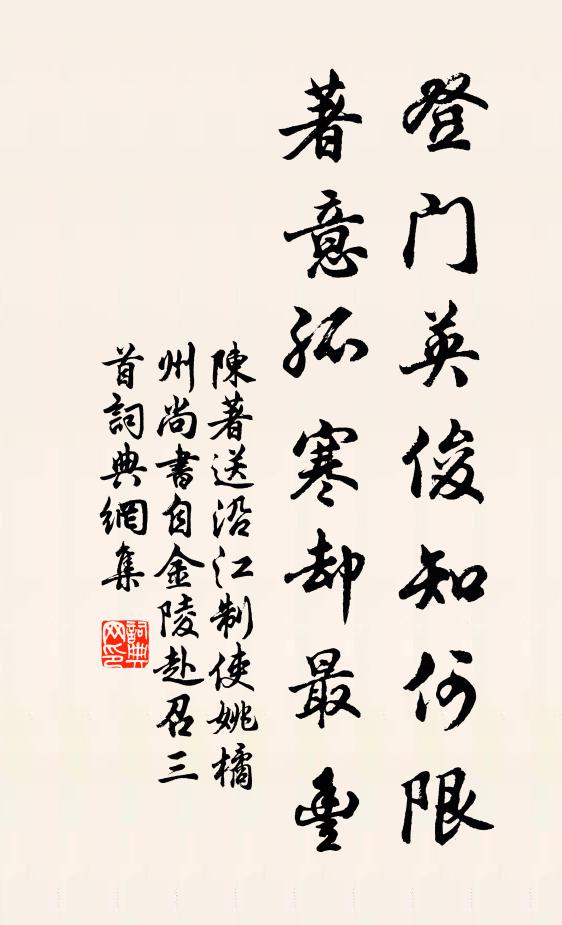 登門英俊知何限
著意孤寒却最豊
陳著送沿江制使姚橘
州尚書自金陵赴召三
首詞典網集
詞典
网印